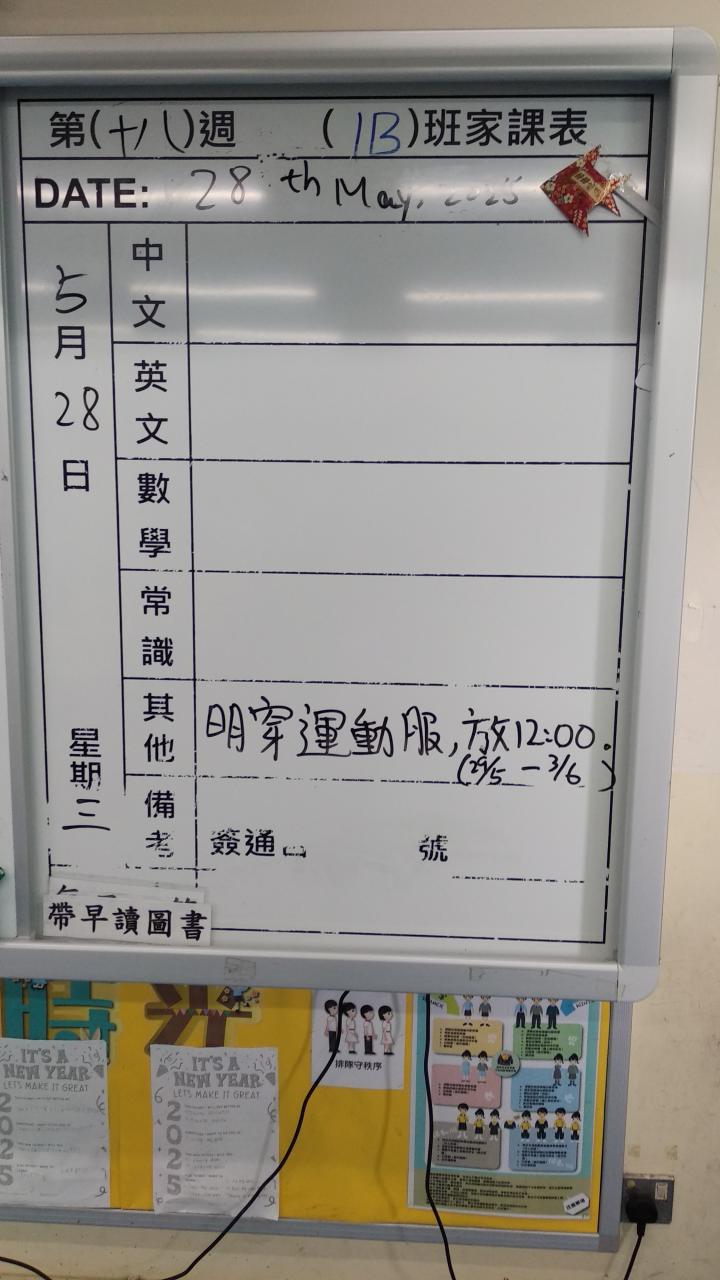 第(十八)週 (1B)班家課表
DATE: 28th May, 2025
5月28日
星期三
中文
英文
數學
常識
其他 明穿運動服,放12:00。
(29/5 — 3/6)
備考 簽通 號
帶早讀圖書
時光
IT'S A NEW YEAR
LETS MAKE IT GREAT
2025
IT'S A NEW YEAR
LETS MAKE IT GREAT
2025
排隊守秩序